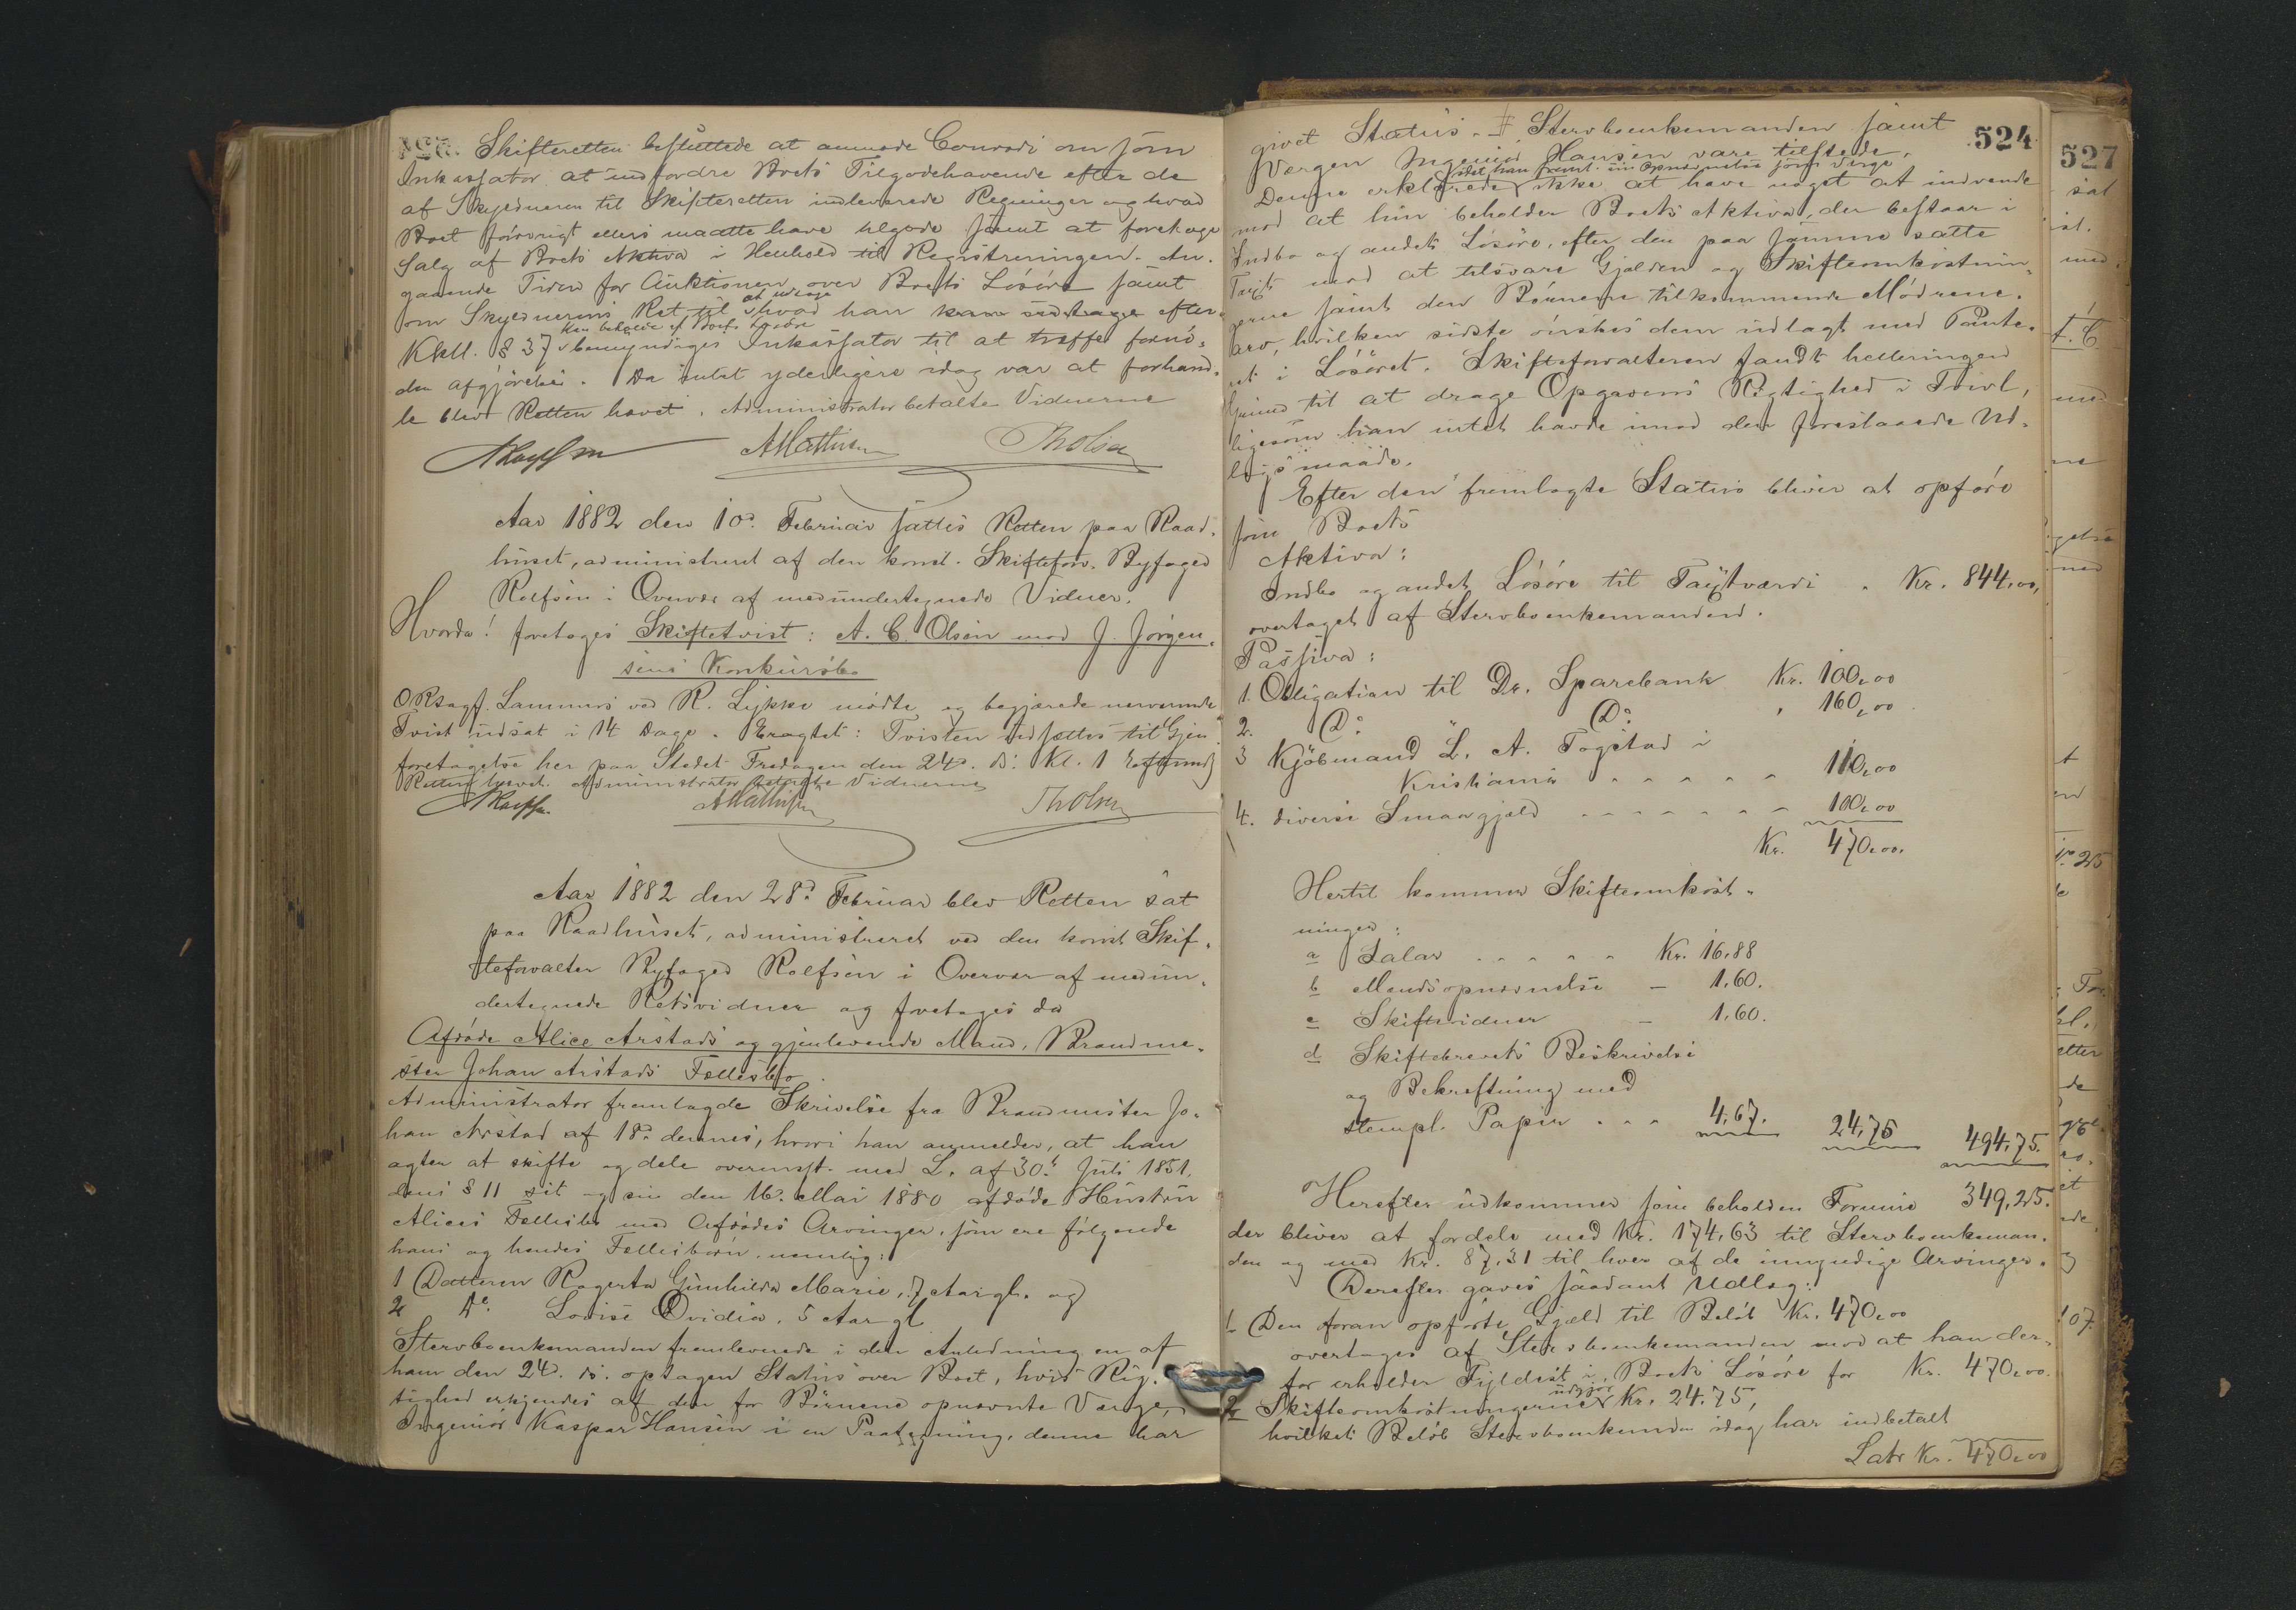 Skifteretten besluttede at anmode Conradi om som
Inkassator at indfordre Boets Tilgodehavende efter de
af Skyldneren til Skifteretten indleverede Regninger og hvad
Boet forøvrigt ellers maatte have tilgode samt at foretage
Salg af Boets Aktiva i Henhold til Registreringen. An-
gaaende Tiden for Auktionen over Boets Løsøre samt
at udtage
om Skyldnerens Ret til hvad han kan udtage efter
kan beholde af Boets Løsøre
Kkll. § 37 bemyndiges Inkassator til at træffe fornø-
den Afgjørelse. Da intet yderligere idag var at forhand-
le blev Retten hævet. Administrator betalte Vidnerne
AMathisen ThOlsen
Aar 1882 den 10de Februar sattes Retten paa Raad-
huset, administreret af den konst. Skiftefov. Byfoged
Rolfsen i Overvær af medundertegnede Vidner.
Hvorda! foretoges Skiftetvist: A. C. Olsen mod J. Jørgen-
sens Konkursbo
ORsagf. Lammers ved R. Lykke mødte og begjærede nærværende
Tvist udsat i 14 Dage. Eragtet: Tvisten udsættes til Gjen-
foretagelse her paa Stedet Fredagen den 24de ds. Kl. 1 Eftermdg
Retten hævet. Administrator betalte Vidnerne
AMathisen ThOlsen
Aar 1882 den 28de Februar blev Retten sat
paa Raadhuset, administreret ved den konst Skif-
teforvalter Byfoged Rolfsen i Overvær af medun-
dertegnede Retsvidner og foretoges da
Afdøde Alice Arstads og gjenlevende Mand, Brandme-
ster Johan Arstads Fællesbo.
Administrator fremlagde Skrivelse fra Brandmester Jo-
han Arstad af 18de dennes, hvori han anmelder, at han
agter at skifte og dele overenst. med L. af 30te Juli 1851.
dens § 11 sit og sin den 16de Mai 1880 afdøde Hustru
Alices Fællesbo med Afdødes Arvinger, som ere følgende
hans og hendes Fællesbørn, nemlig:
1 Datteren Ragerta Gunhilda Marie, 7 Aargl. og
2 Do. Lovise Ovidia, 5 Aar gl
Stervboenkemanden fremleverede i den Anledning en af
ham den 24de ds. optagen Status over Boet, hvis Rig-
tighed erkjendes af den for Børnene opnævnte Værge,
Ingeniør Kaspar Hansen i en Paategning, denne har
524
givet Status. Stervboenkemanden samt
Værgen Ingeniør Hansen vare tilstede.
idet han freml. sin Opnævnelse som Værge
Denne erklærede ikke at have noget at indvende
mod at hin beholder Boets Aktiva, der bestaar i
Indbo og andet Løsøre, efter den paa samme satte
Taxt mod at tilsvare Gjælden og Skifteomkostnin-
gerne samt den Børnene tilkommende Mødrene-
arv, hvilken sidste ønskes dem udlagt med Pante-
ret i Løsøret. Skifteforvalteren fandt helleringen
Grund til at drage Opgavens Rigtighed i Tvivl,
ligesom han intet havde imod den foreslaaede Ud-
lægsmaade.
Efter den fremlagte Status bliver at opføre
som Boets
Aktiva:
Indbo og andet Løsøre til Taxtværdi . Kr. 844,00,
overtaget af Stervboenkemanden.
Passiva:
1. Obligation til Dr. Sparebank Kr. 100,00
2. Do. Do. " 160,00
3 Kjøbmand L. A. Fogstad i
Kristiania - - - - - 110,00
4. diverse Smaagjæld - - - - - - 100,00
Kr. 470,00.
Hertil kommer Skifteomkost-
ninger:
a Salar - - - - - Kr. 16,88
b Mændsopnævnelse - 1,60.
c Skiftevidner - 1,60.
d Skiftebrevets Beskrivelse
og Bekræftning med
stempl. Papir - - - 4,67. 24,75 494,75.
Herefter udkommer som beholden Formue 349,25.
der bliver at fordele med Kr. 174,63 til Stervboenkeman-
den og med Kr. 87,31 til hver af de umyndige Arvinger.
Derefter gaves saadant Udlæg:
1. Den foran opførte Gjæld til Beløb Kr. 470,00
overtages af Stervboenkemanden, mod at han der-
for erholder Fyldest i Boets Løsøre for Kr. 470,00.
udgjør
2. Skifteomkostningerne Kr. 24.75,
hvilket Beløb Stervboenkemanden idag har indbetalt
Latr Kr. 470,00
527